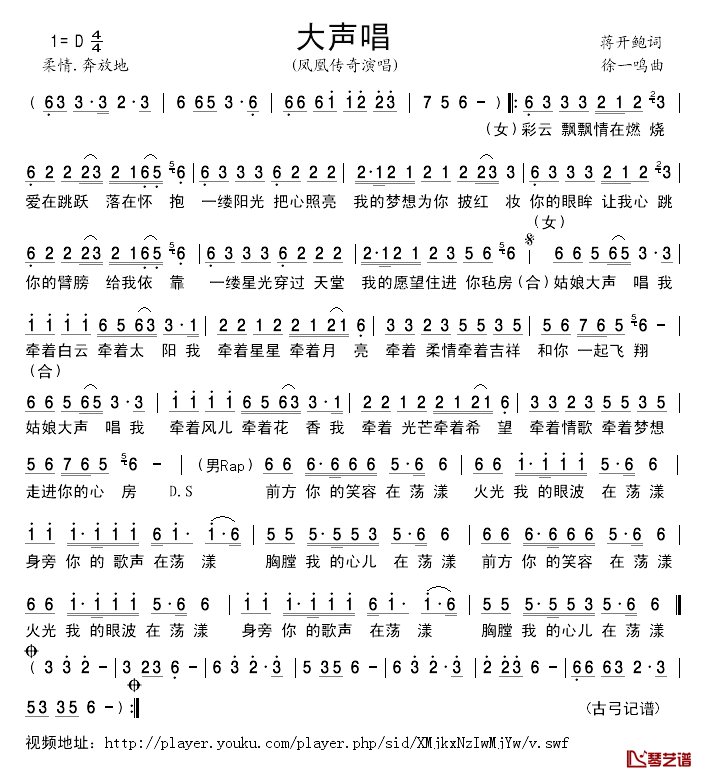 大声唱
1= D 4/4
蒋开鲍词
柔情.奔放地
(凤凰传奇演唱)
徐一鸣曲
( 63 3·3 2·3 | 6 63 5·3 | 66 61 12 23 | 7 5 6 - )‖: 6 3 3 3 2 1 2 23 |
(女)彩云 飘飘情在燃 烧
6 2 2 23 2 165 56 | 6 3 3 3 6 2 2 2 | 2·12 1 2 2 1 23 | 6 3 3 3 2 1 2 23 |
爱在跳跃 落在怀 抱 一缕阳光 把心照亮 我的梦想为你 披红 妆 你的眼眸 让我心 跳
(女)
6 2 2 23 2 165 56 | 6 3 3 3 6 2 2 2 | 2·12 1 2 3 5 56 | 6 6 5 65 3·3 |
你的臂膀 给我依 靠 一缕星光穿过 天堂 我的愿望住进 你毡房(合)姑娘大声 唱 我
1 1 1 1 6 5 63 3·1 | 2 2 1 2 2 1 21 6 | 3 3 2 3 5 5 3 5 | 5 6 7 65 56 - |
牵着白云 牵着太 阳 我 牵着星星 牵着月 亮 牵着 柔情牵着吉祥 和你 一起飞 翔
(合)
6 6 5 65 3·3 | 1 1 1 1 6 5 63 3·1 | 2 2 1 2 2 1 21 6 | 3 3 2 3 5 5 3 5 |
姑娘大声 唱 我 牵着风儿 牵着花 香 我 牵着 光芒牵着希 望 牵着情歌 牵着梦想
5 6 7 65 56 - | (男Rap) 6 6 6·6 6 6 5·6 | 6 6 1·1 1 1 5·6 |
走进你的心 房 D.S 前方 你 的 笑容 在 荡漾 火光 我 的眼波 在 荡漾
1 1 2·2 2 6 1·6 | 5 5 5·5 5 3 5·6 6 | 6 6 6·6 6 6 5·6 |
身旁 你 的 歌声 在荡 漾 胸膛 我 的心儿 在 荡漾 前方 你 的笑容 在荡漾
6 6 1·1 1 1 5·6 | 1 1 2·2 2 6 1·6 | 5 5 5·5 5 3 5·6 ‖
火光 我 的眼波 在 荡漾 身旁 你 的歌声 在荡漾 胸膛 我 的心儿 在荡漾
( 3 3 2· - | 3 23 6 - | 6 3 2·3 | 6 3 2·3 | 2 12 6 - | 66 63 2·3 |
53 35 6 - ):‖
(古弓记谱)
视频地址:http://player.youku.com/player.php/sid/XMjkxNzIwMjYw/v.swf
琴艺谱